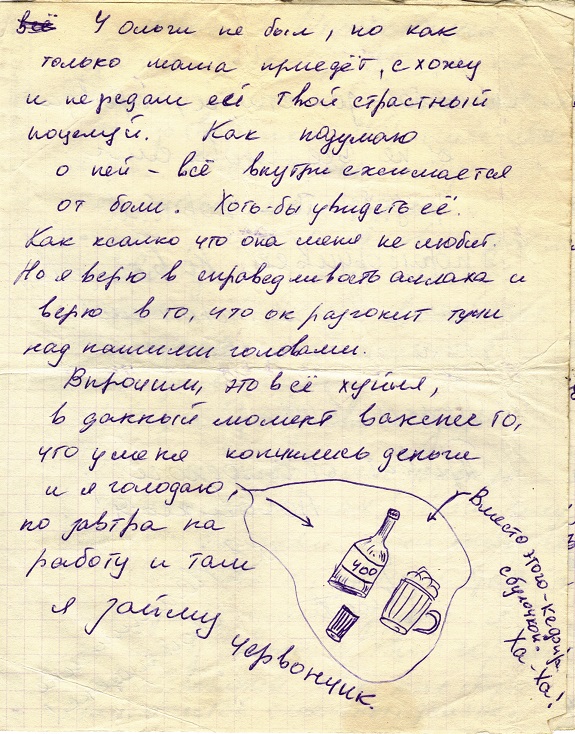 всё У Ольги не был, но как
только мама приедет, схожу
и передам ей твой страстный
поцелуй. Как подумаю
о ней – всё внутри сжимается
от боли. Хоть-бы увидеть её.
Как жалко что она меня не любит.
Но я верю в справедливость аллаха и
верю в то, что он разгонит тучи
над нашими головами.
Впрочим, это всё хуйня,
в данный момент важнее то,
что у меня кончились деньги
и я голодаю,
но завтра на
работу и там
я займу
червончик.
400
Вместо этого – кефир
с булочкой.
Ха-Ха!